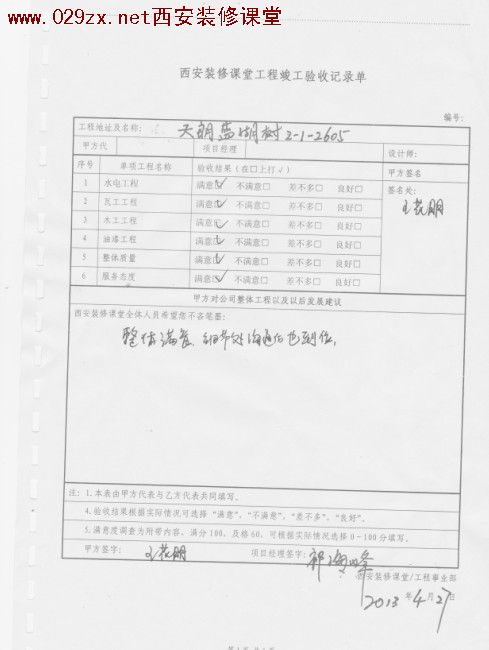 www.029zx.net西安装修课堂
西安装修课堂工程竣工验收记录单
编号：
工程地址及名称： 天朗蓝湖树2-1-2605
甲方代 项目经理 设计师：
序号 单项工程名称 验收结果（在□上打√） 甲方签名
1 水电工程 满意☑ 不满意□ 差不多□ 良好□ 签名处：
2 瓦工工程 满意☑ 不满意□ 差不多□ 良好□ 王花朋
3 木工工程 满意☑ 不满意□ 差不多□ 良好□
4 油漆工程 满意☑ 不满意□ 差不多□ 良好□
5 整体质量 满意☑ 不满意□ 差不多□ 良好□
6 服务态度 满意☑ 不满意□ 差不多□ 良好□
甲方对公司整体工程以及以后发展建议
西安装修课堂全体人员希望您不吝笔墨：
整体满意、细节处沟通后也到位。
注：1.本表由甲方代表与乙方代表共同填写。
4.验收结果根据实际情况可选择“满意”、“不满意”，“差不多”，“良好”。
5.满意度调查为所带内容，满分100，及格60，可根据实际情况选择0-100分填写。
甲方签字： 王花朋 项目经理签字：
西安装修课堂/工程事业部
2013年4月27日
第1页 共1页